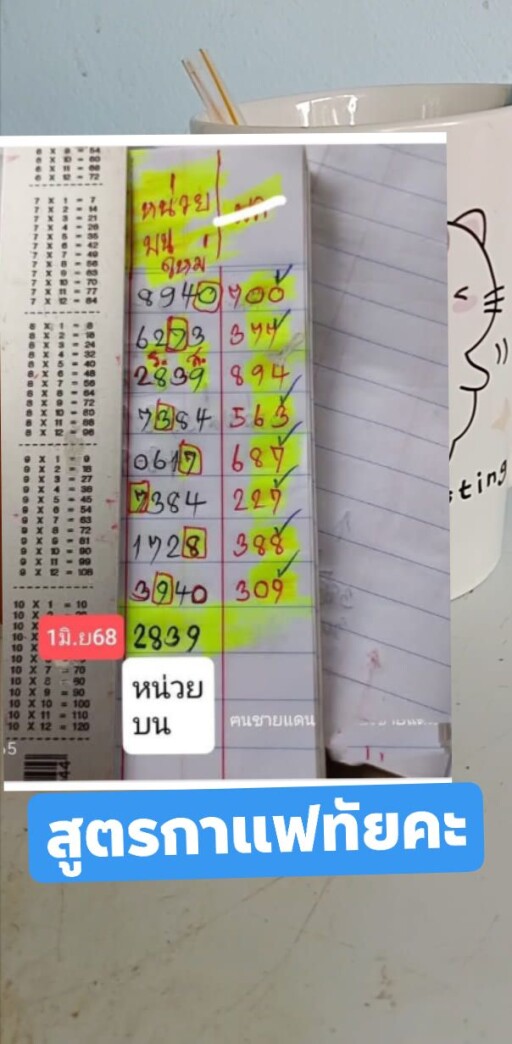 6 X 9 = 54
6 X 10 = 60
6 X 11 = 66
6 X 12 = 72
7 X 1 = 7
7 X 2 = 14
7 X 3 = 21
7 X 4 = 28
7 X 5 = 35
7 X 6 = 42
7 X 7 = 49
7 X 8 = 56
7 X 9 = 63
7 X 10 = 70
7 X 11 = 77
7 X 12 = 84
8 X 1 = 8
8 X 2 = 16
8 X 3 = 24
8 X 4 = 32
8 X 5 = 40
8 X 6 = 48
8 X 7 = 56
8 X 8 = 64
8 X 9 = 72
8 X 10 = 80
8 X 11 = 88
8 X 12 = 96
9 X 1 = 9
9 X 2 = 18
9 X 3 = 27
9 X 4 = 36
9 X 5 = 45
9 X 6 = 54
9 X 7 = 63
9 X 8 = 72
9 X 9 = 81
9 X 10 = 90
9 X 11 = 99
9 X 12 = 108
10 X 1 = 10
10 X
10 X
10 X
10 X
10 X
10 X 7 = 70
10 X 8 = 80
10 X 9 = 90
10 X 10 = 100
10 X 11 = 110
10 X 12 = 120
หน่วย
บน
ใหม่
8940 700
6293 374
ร. ก.
2839 894
7384 563
0617 687
7384 227
1728 388
3940 309
1มิ.ย68 2839
หน่วย
บน
ฅนชายแดน
44
sting
สูตรกาแฟทัยคะ